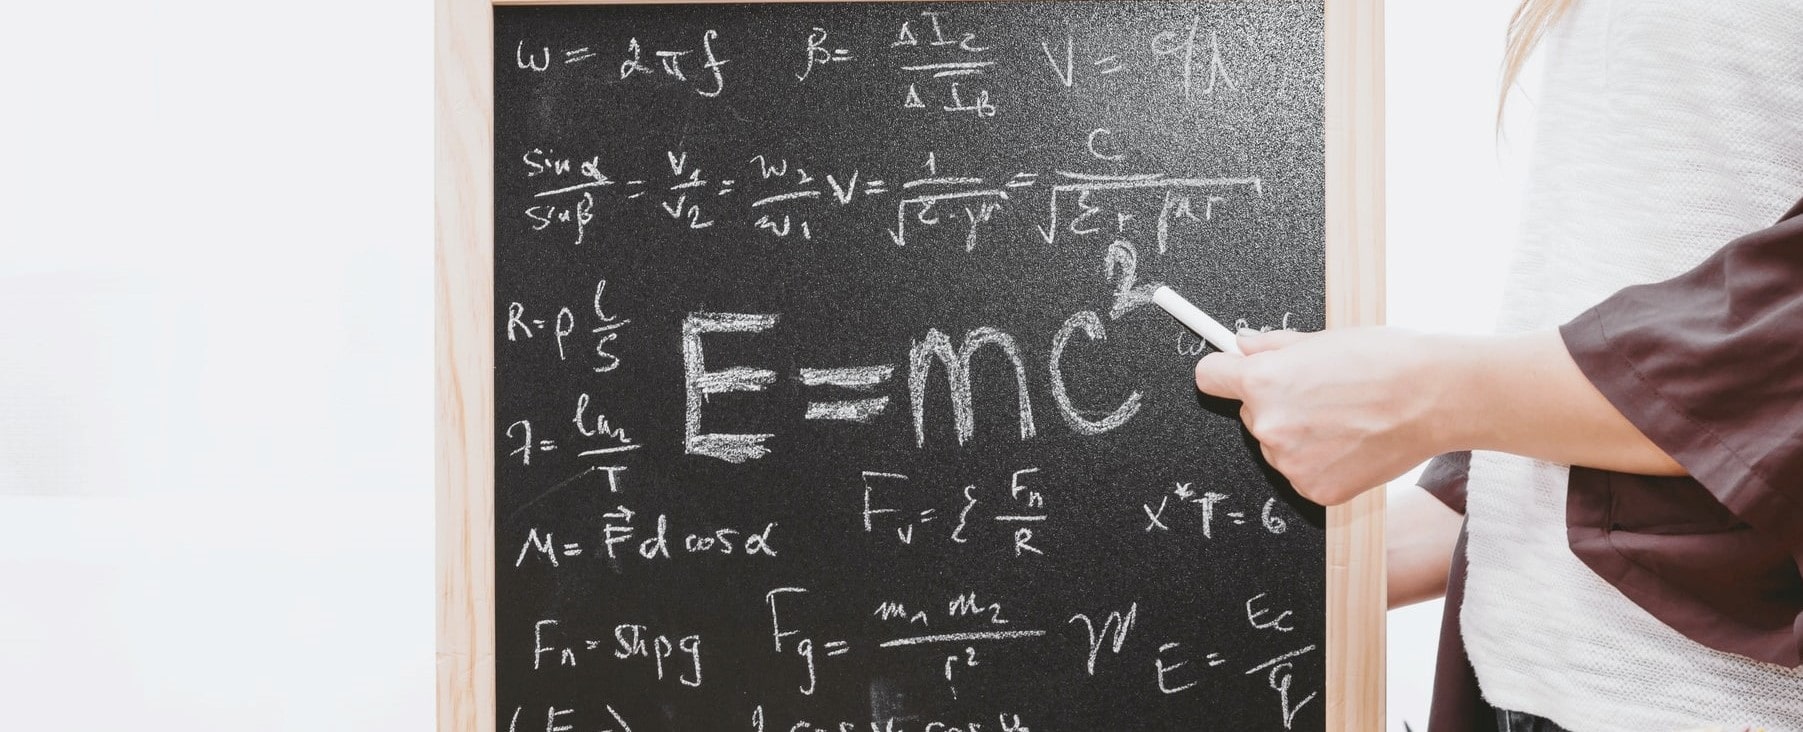 ω = 2πf β= ΔI_c/ΔI_B V = c/λ
sinα/sinβ = v₁/v₂ = w₂/w₁ V = 1/√(ε·μ) = c/√(ε_r μ_r)
R=ρ l/S
E=mc²
M= F⃗ d cosα
F_v= { F_n/R
x*T=6
F_n= Shρg F_g= m₁m₂/r² E= E_c/q